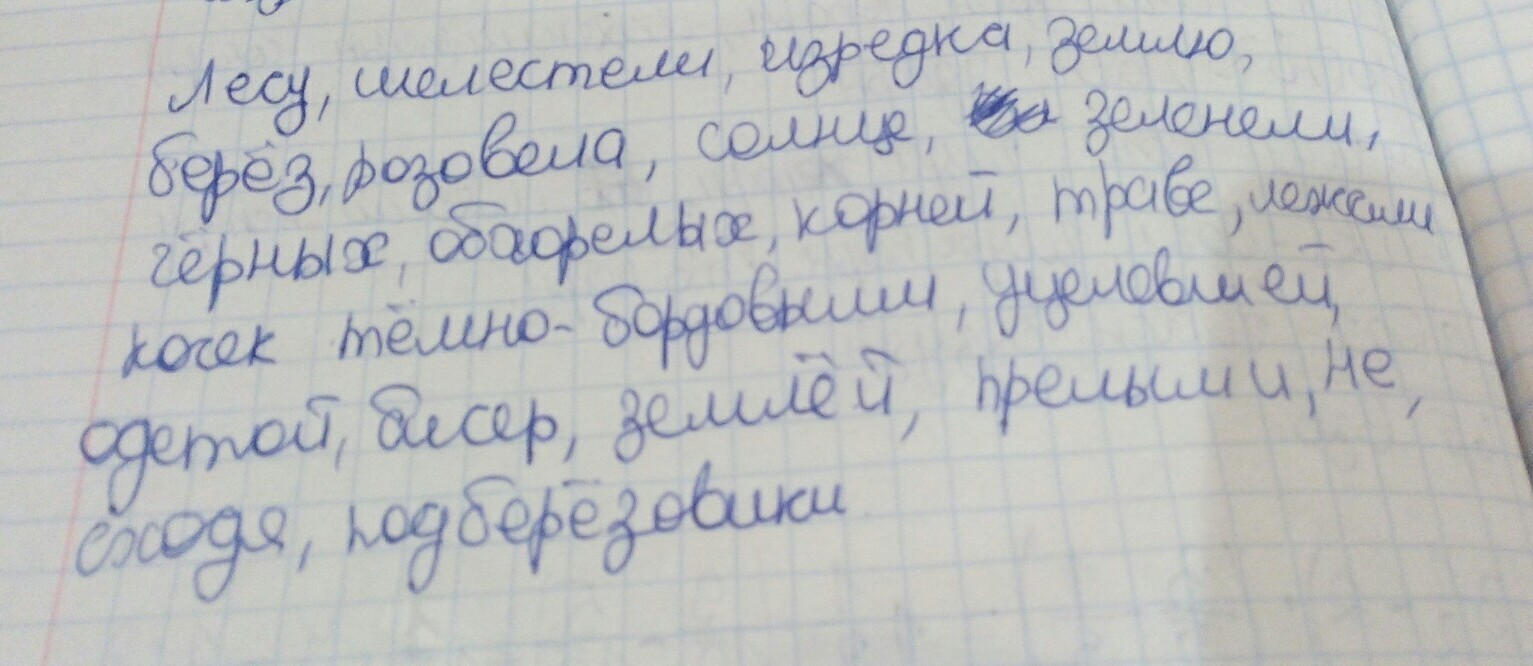 Лесу, шелестели, изредка, землю,
берёз, розовела, солнце, зеленели,
чёрных, обгорелых, корней, траве, лежали
кочек тёмно-бордовыми, уцелевшей,
одетой, бисер, землёй, прелыми, не,
сходя, подберёзовики